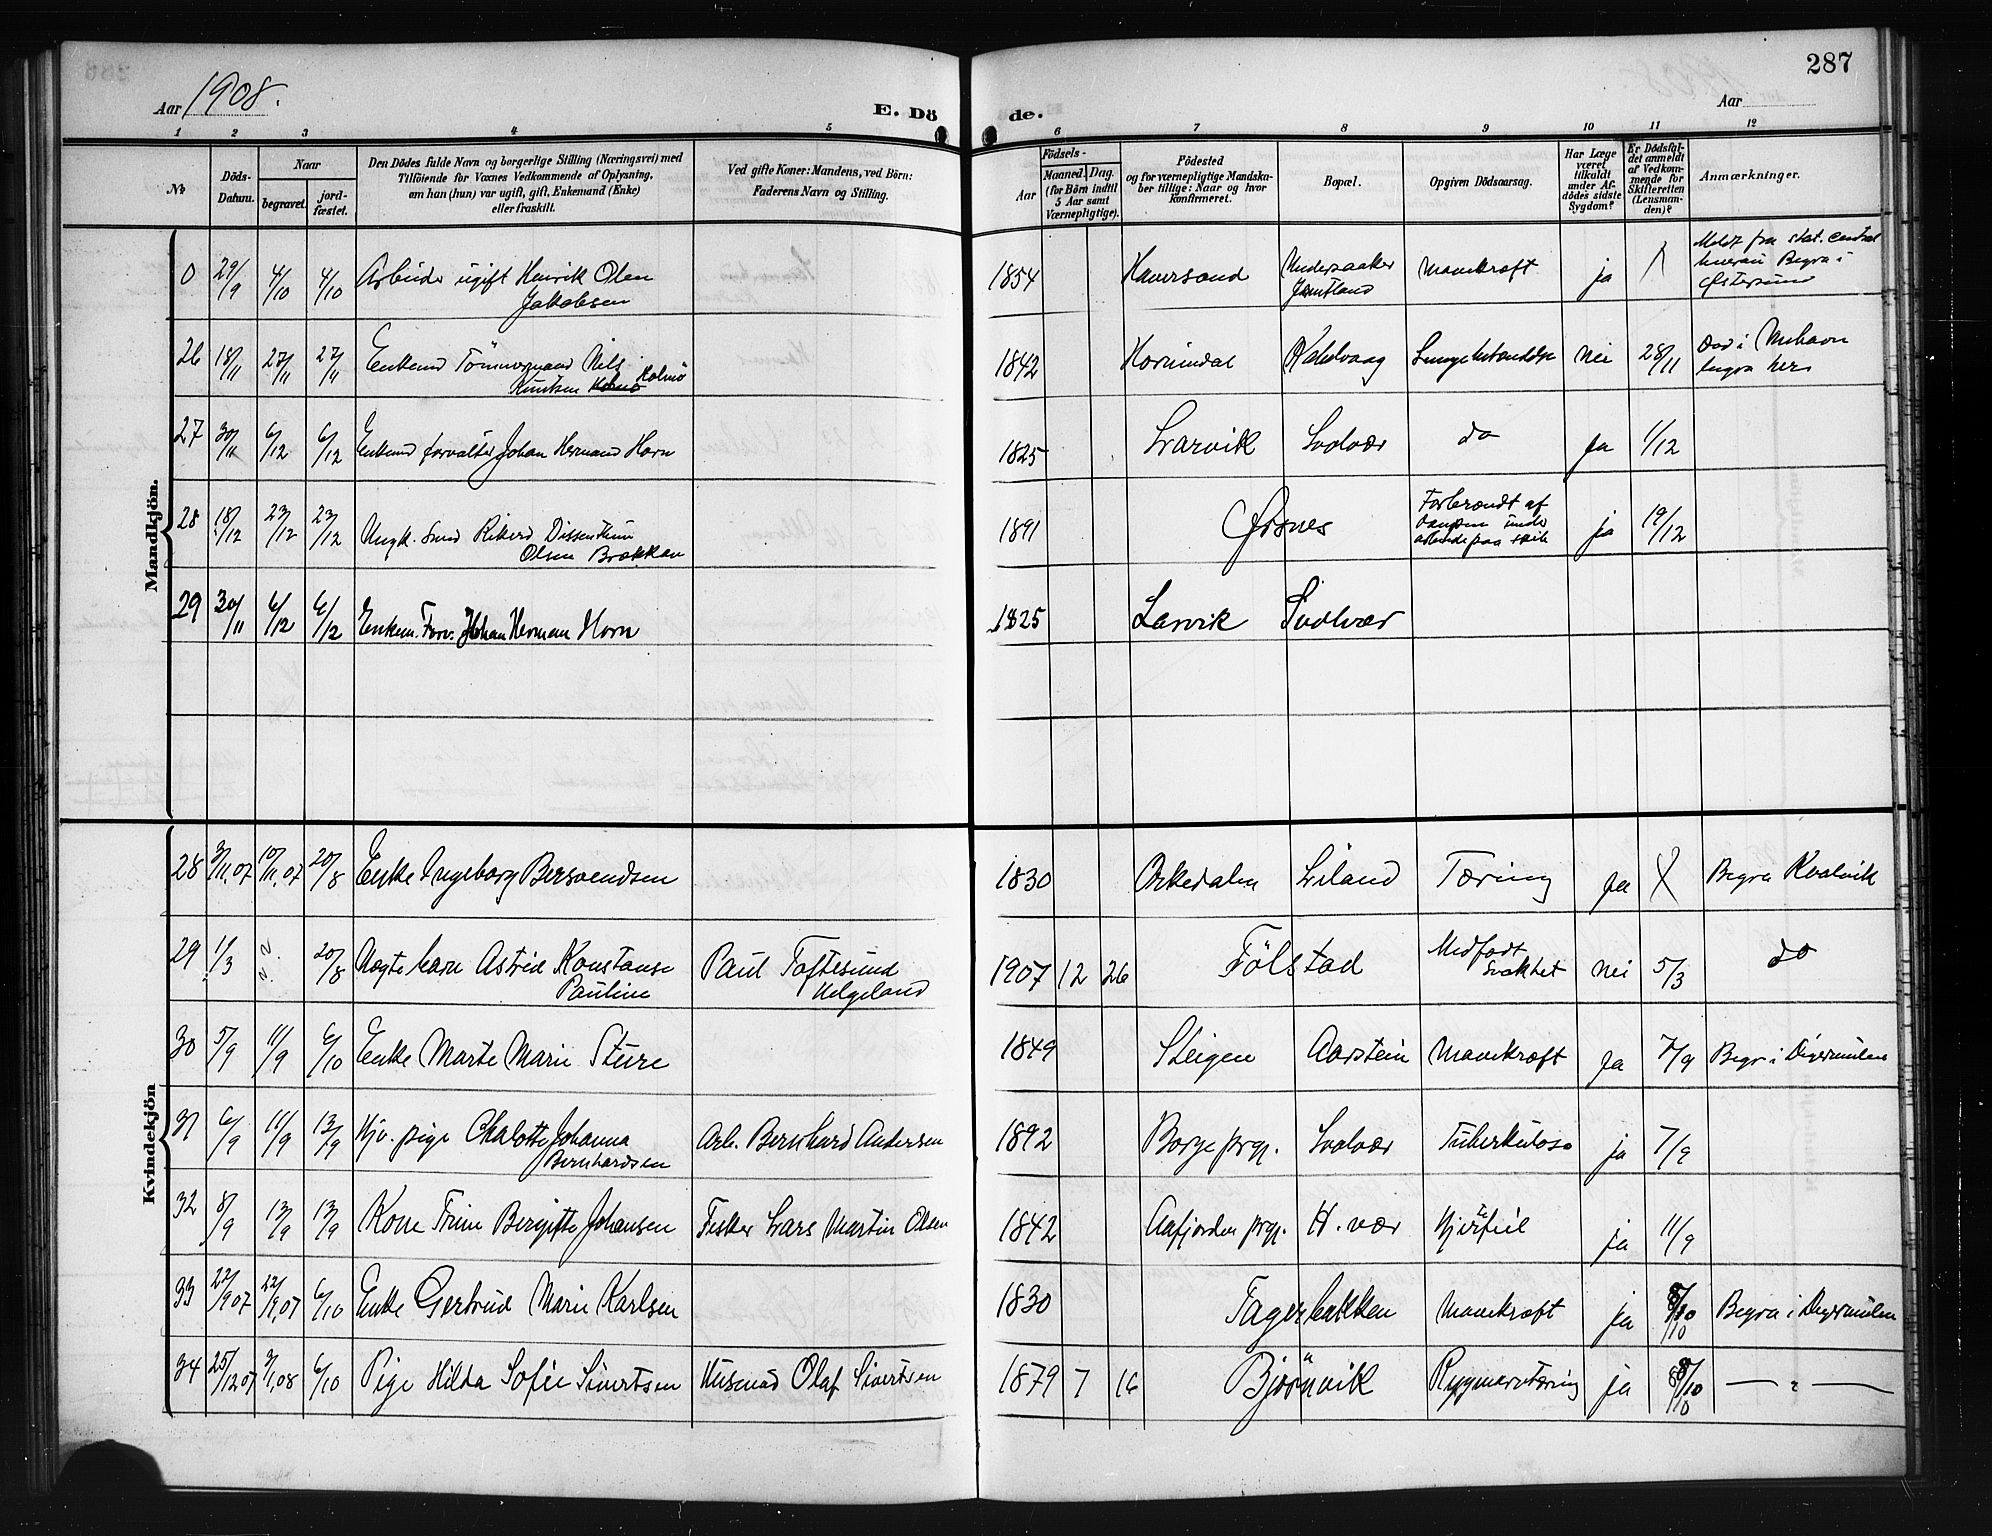 287
Aar 1908.
E. Dö
de.
Aar
1 2 3 4 5 6 7 8 9 10 11 12
No
Döds-Datum.
Naar
begravet.
jord-fæstet.
Den Dödes fulde Navn og borgerlige Stilling (Næringsvei) med
Tilföiende for Voxnes Vedkommende af Oplysning,
om han (hun) var ugift, gift, Enkemand (Enke)
eller fraskilt.
Ved gifte Koner: Mandens, ved Börn:
Faderens Navn og Stilling.
Födsels-
Aar
Maaned. Dag.
(for Börn indtil
5 Aar samt
Værnepligtige).
Födested
og for værnepligtige Mandska-
ber tillige: Naar og hvor
konfirmeret.
Bopæl.
Opgiven Dödsaarsag.
Har Læge
været
tilkaldt
under Af-
dödes sidste
Sygdom?
Er Dödsfal-
det anmeldt
af Vedkom-
mende for
Skifteretten
(Lensman-
den)?
Anmærkninger.
Mandkjön.
0 29/9 4/10 4/10 Arbeider ugift Henrik Olen
Jakobsen
1854 Haversand Undersaaker
Jemtland
Mavekræft ja
Meldt fra stat. central
Begra i
Østersund
26 18/11 27/11 27/11 Enkemd Tömmermand Nils
Knutsen Holmö
1842 Hornindal Kabelvaag Lungebetændelse nei 28/11 Död i
begra her
27 30/11 6/12 6/12 Enkemd forvalter Johan Hermand Horn
1825 Larvik Svolvær do ja 1/12
28 18/12 23/12 23/12 Ungk. Smed Rikard Dissenthun
Olsen Brækkan
1891 Örsnes Forbrændt af
dampen under
arbeide paa skib
ja 19/12
29 30/11 6/12 6/12 Enkem. Forv. Johan Herman Horn
1825 Larvik Svolvær
Kvindekjön
28 3/11.07 10/11.07 20/8 Enke Ingeborg Bersvendsen
1830 Orkedalen Liland Tæring ja X Begra Kvalvik
29 1/3 ? ? 20/8 Uegte barn Astrid Konstanse
Pauline
Paul Toftesund
Helgeland
1907 12 26 Fölstad Medfödt
svakhet
nei 5/3 do
30 5/9 11/9 6/10 Enke Marte Marie Sture
1849 Steigen Aarstein Mavekræft ja 7/9 Begr i Digermulen
31 6/9 11/9 13/9 Hjv. pige Chalotte Johanna
Bernhardsen
Arb. Bernhard Andersen
1892 Borge prgj. Svolvær Tuberkulose ja 7/9
32 8/9 13/9 13/9 Kone Trine Bergitte Johansen
Fisker Lars Martin Olsen
1842 Aafjorden prgj. H. vær Hjertefeil ja 11/9
33 22/9 07 22/9.07 6/10 Enke Gertrud Marie Karlsen
1830 Fagerbakken Mavekræft ja 8/10 Begra i Digermulen
34 25/12 07 3/1.08 6/10 Pige Hilda Sofie Sivertsen
Husmd Olaf Sivertsen
1879 7 16 Björnvik Rygmarvtæring ja 8/10 — " —